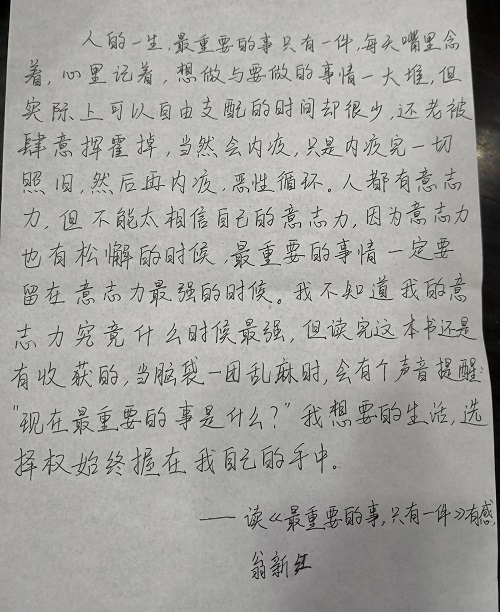 人的一生，最重要的事只有一件，每天嘴里念
着，心里记着，想做与要做的事情一大堆，但
实际上可以自由支配的时间却很少，还老被
肆意挥霍掉，当然会内疚，只是内疚完一切
照旧，然后再内疚，恶性循环。人都有意志
力，但不能太相信自己的意志力，因为意志力
也有松懈的时候，最重要的事情一定要
留在意志力最强的时候。我不知道我的意
志力究竟什么时候最强，但读完这本书还是
有收获的，当脑袋一团乱麻时，会有个声音提醒：
“现在最重要的事是什么？”我想要的生活，选
择权始终握在我自己的手中。
——读《最重要的事，只有一件》有感
翁新红